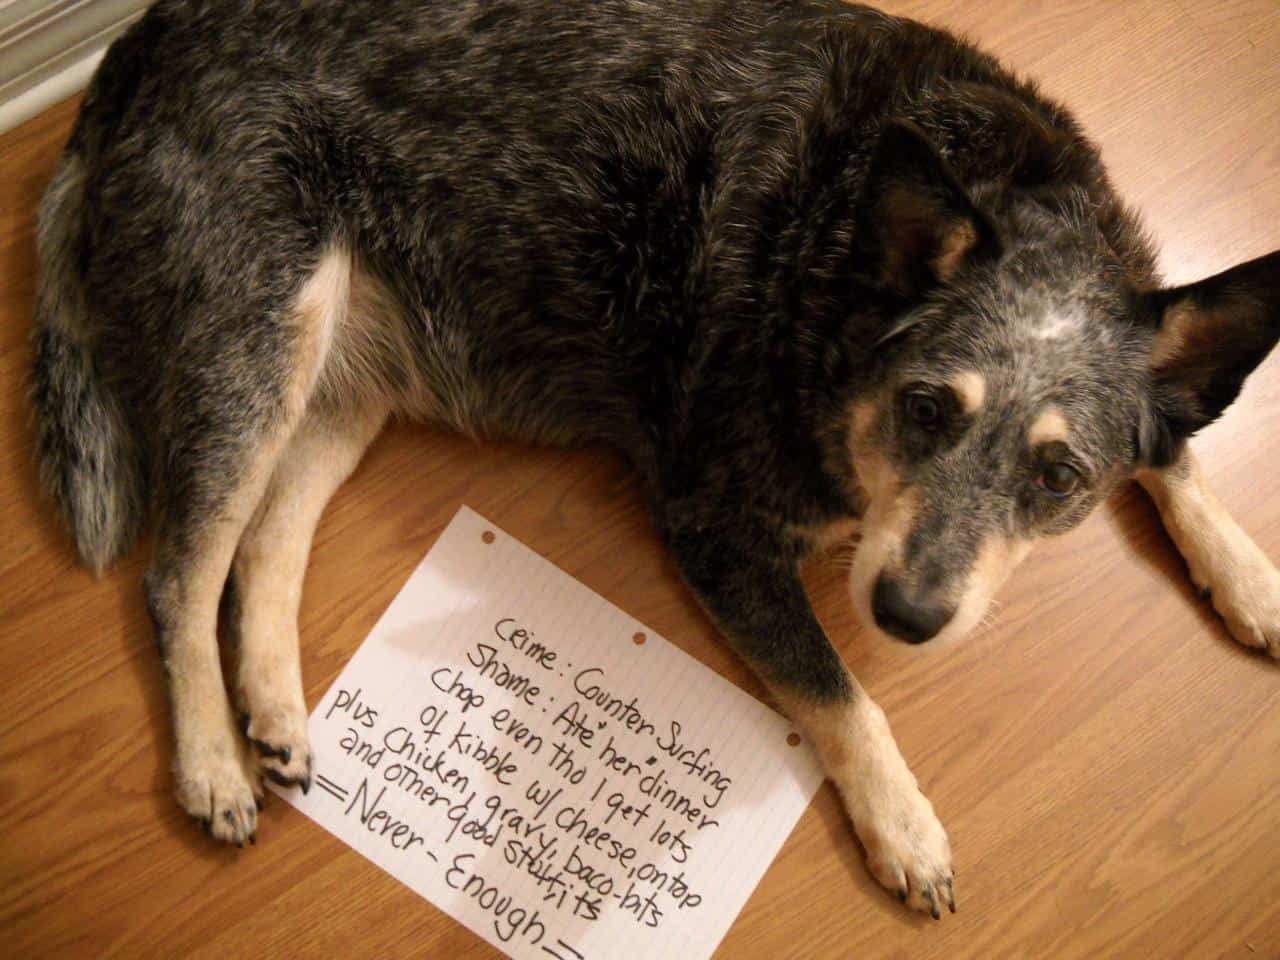 Crime: Counter Surfing
Shame: Ate "her" dinner
chop even tho I get lots
of kibble w/ cheese, on top
plus chicken, gravy, baco-bits
and other good stuff, it's
=Never-Enough=